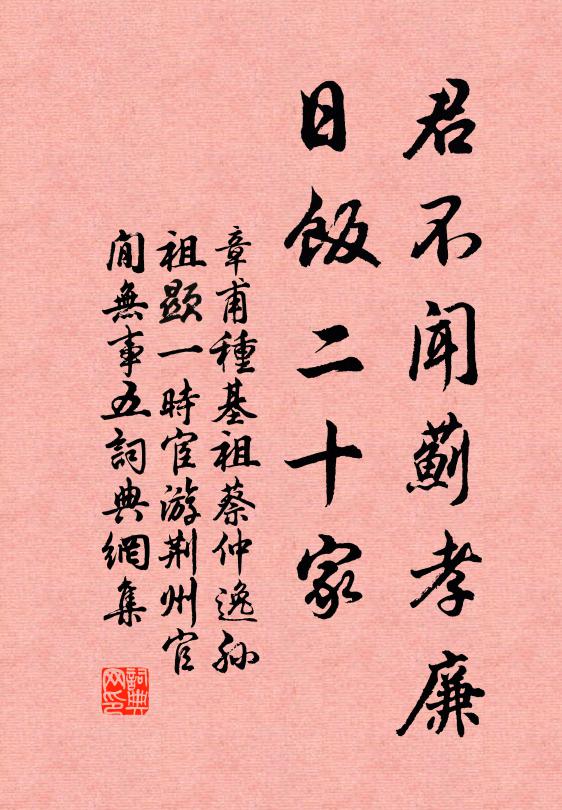 君不闻蓟孝廉
日饭二十家
章甫種基祖蔡仲逸孙
祖顯一時宦游荆州官
閒無事五詞典網集
詞典网印